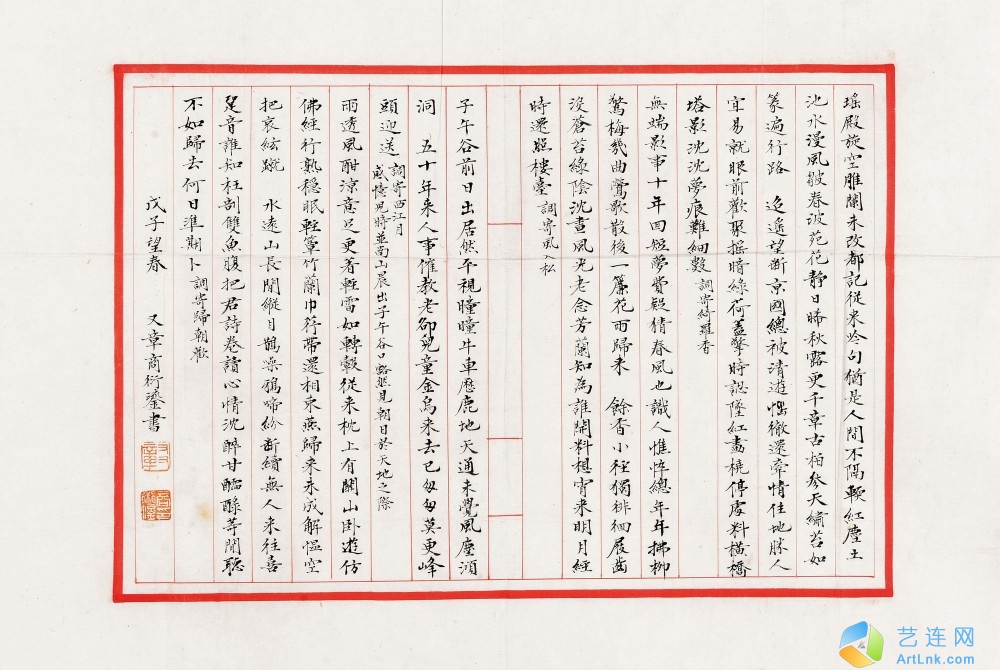 瑤殿旋空雕闌未改都記從來吟句猶是人間不隔輭紅塵土
池水漫風皺春波苑花靜日晞秋露更千章古柏參天繡苔如
篆遍行路　迢遥望斷京國總被清遊惱徹還牽情住地勝人
宜易就眼前歡聚搖暗綠荷蓋擎時認墜紅畫橈停處料橫橋
塔影沈沈夢痕難細數 調寄綺羅香
無端影事十年回短夢費疑猜春風也識人憔悴總年年拂柳
驚梅幾曲鶯歌散後一簾花雨歸來　餘香小徑獨徘徊屐齒
沒蒼苔綠陰沈晝風光老念芳蘭知為誰開料想宵來明月經
時還照樓臺 調寄風入松
子午谷前日出居然平視曈曈牛車歷鹿地天通未覺風塵澒
洞　五十年來人事催教老卻兒童金烏來去已匆匆莫更峰
頭迎送 調寄西江月
感憶兒時並南山晨出子午谷口豁然見朝日於天地之際
雨透風酣涼意足更著輕雷如轉轂從來枕上有關山臥遊仿
佛經行熟穩眠輕簟竹蘭巾荇帶還相束燕歸來未成解慍空
把哀絃蹴　水遠山長閒縱目鵲噪鴉啼紛斷續無人來往喜
跫音誰知枉剖雙魚腹把君詩卷讀心情沈醉甘醽醁等閒聽
不如歸去何日準期卜 調寄歸朝歡
戊子望春　又章商衍鎏書
又章
艺连网
ArtLnk.com